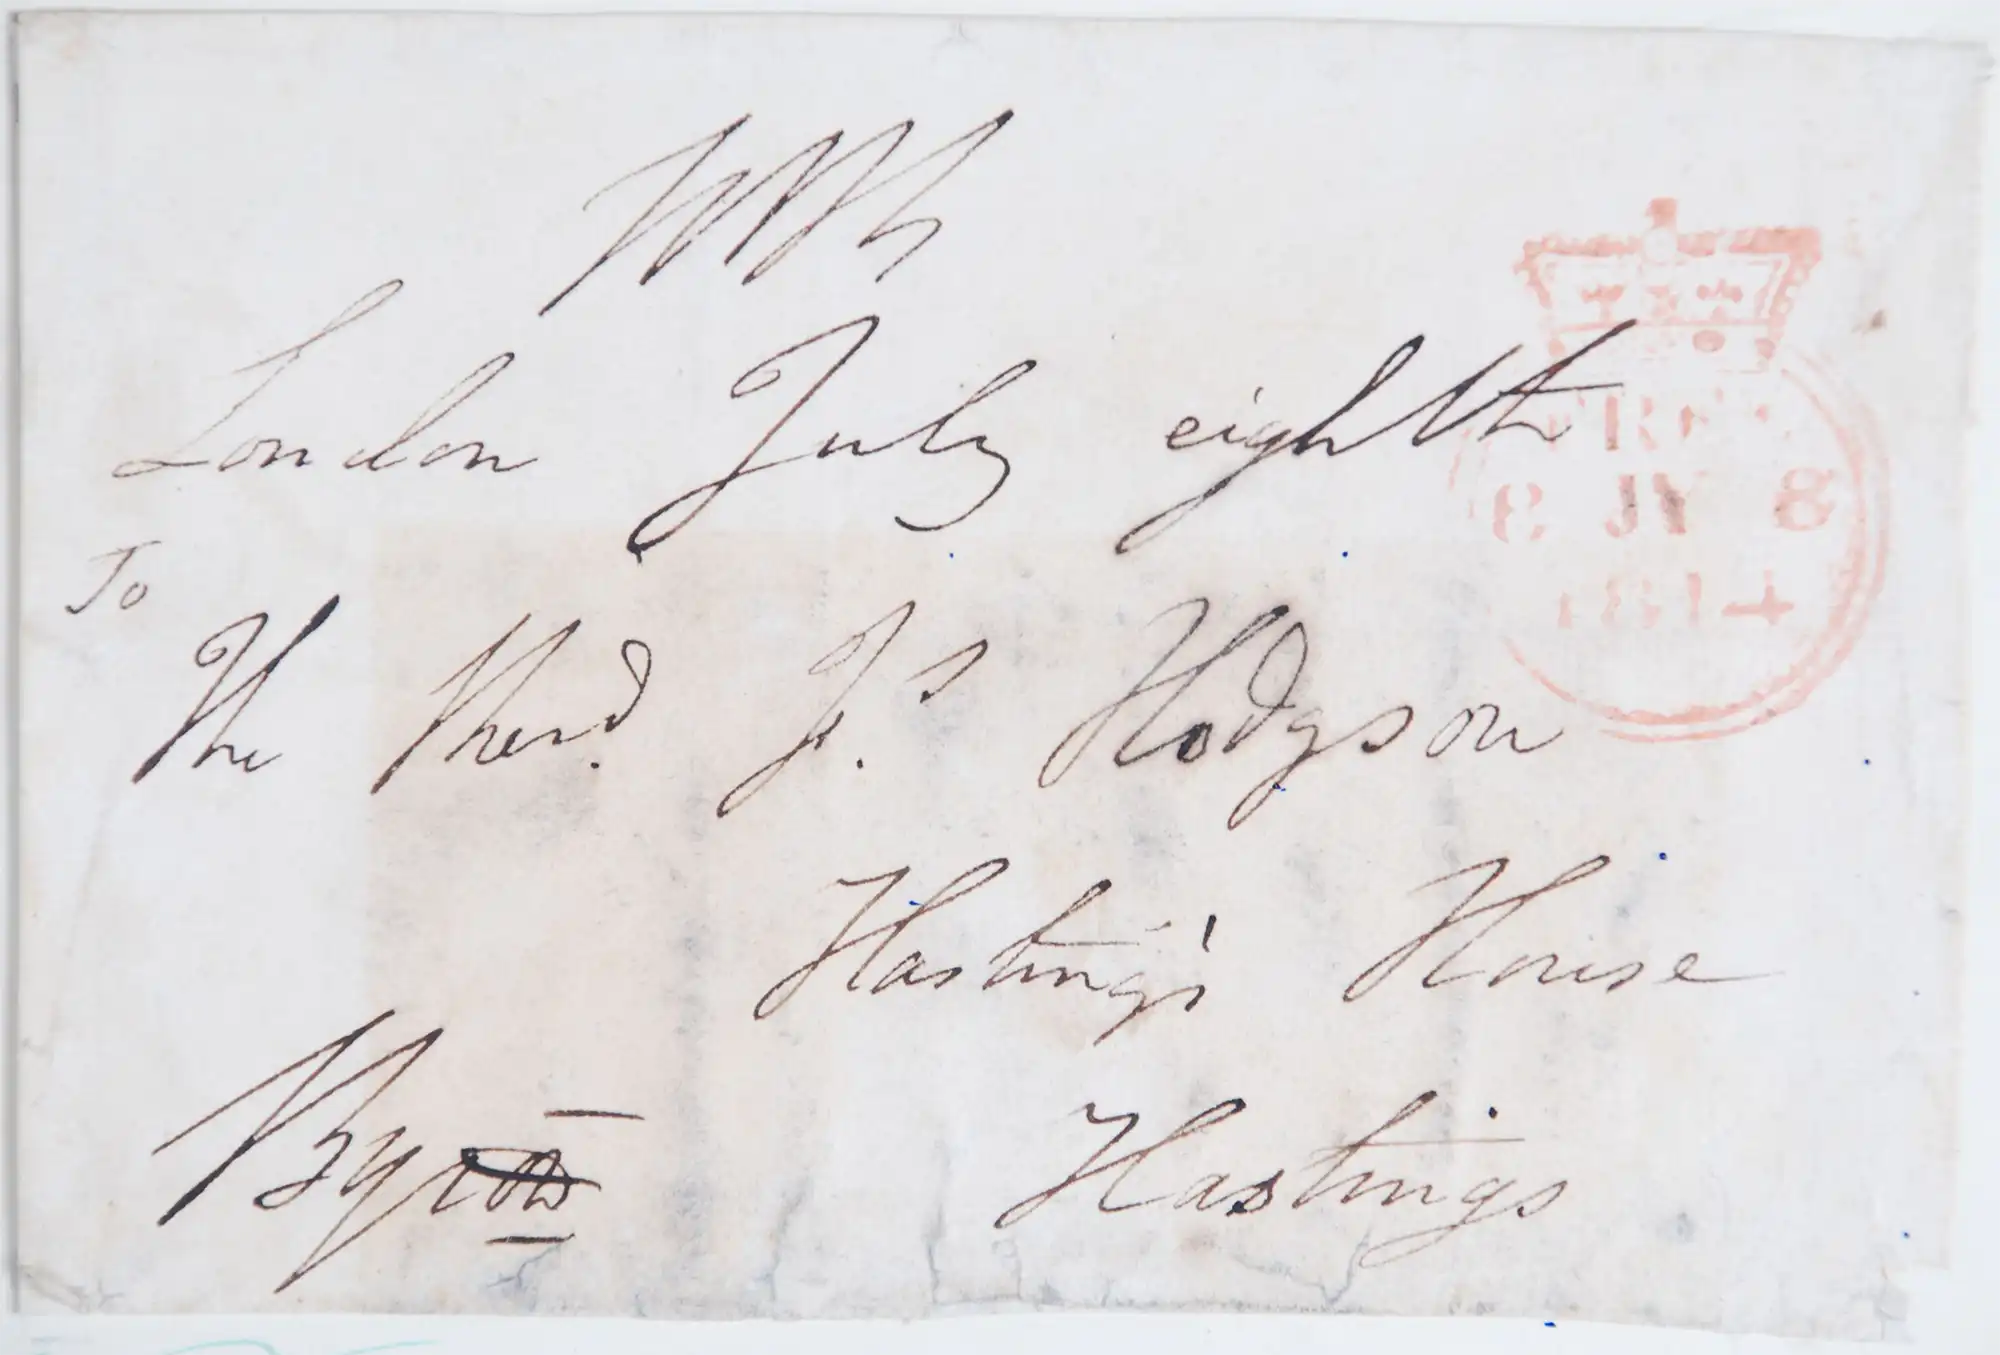 London July eighth
To
The Revd. Js. Hodgson
Hasting's House
Hastings
Byron
FREE
8 JY 8
1814